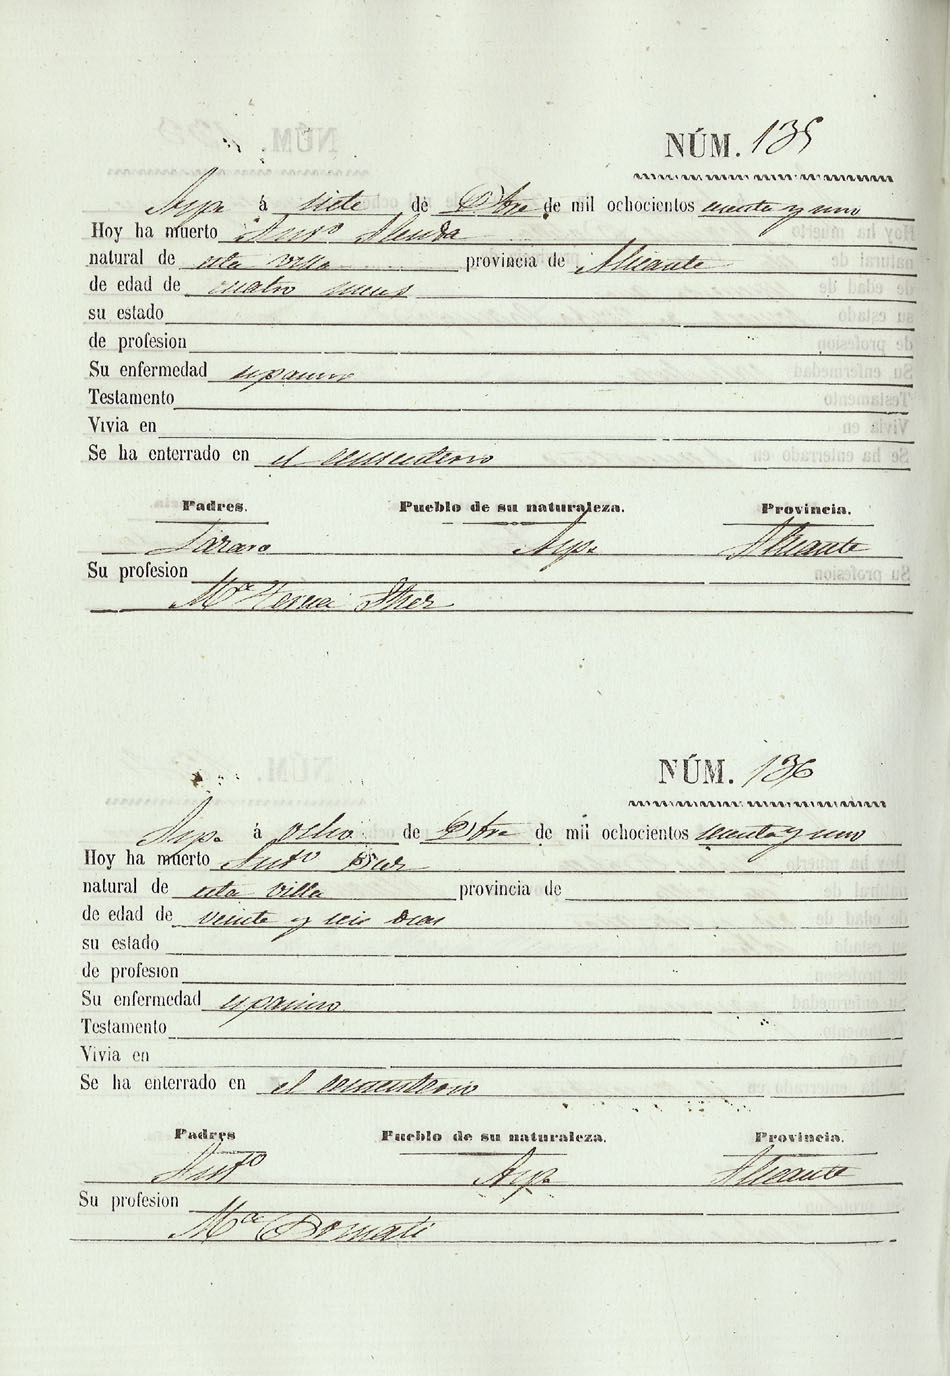 NÚM. 135
Aspe á siete de Dbre de mil ochocientos cuenta y uno
Hoy ha muerto Antº Alenda
natural de esta villa provincia de Alicante
de edad de cuatro meses
su estado
de profesion
Su enfermedad espasmo
Testamento
Vivia en
Se ha enterrado en el cementerio
Padres. Pueblo de su naturaleza. Provincia.
Aspe Alicante
Su profesion
Mª Teresa
NÚM. 136
Aspe á ocho de Dbre de mil ochocientos cuenta y uno
Hoy ha muerto Antº
natural de esta villa provincia de
de edad de veinte y seis dias
su estado
de profesion
Su enfermedad espasmo
Testamento
Vivia en
Se ha enterrado en el cementerio
Padres Pueblo de su naturaleza. Provincia.
Antº Aspe Alicante
Su profesion
Mª